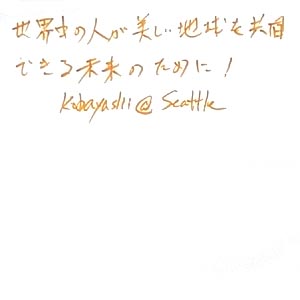 世界中の人が美しい地球を共有
できる未来のために！
Kobayashi@Seattle